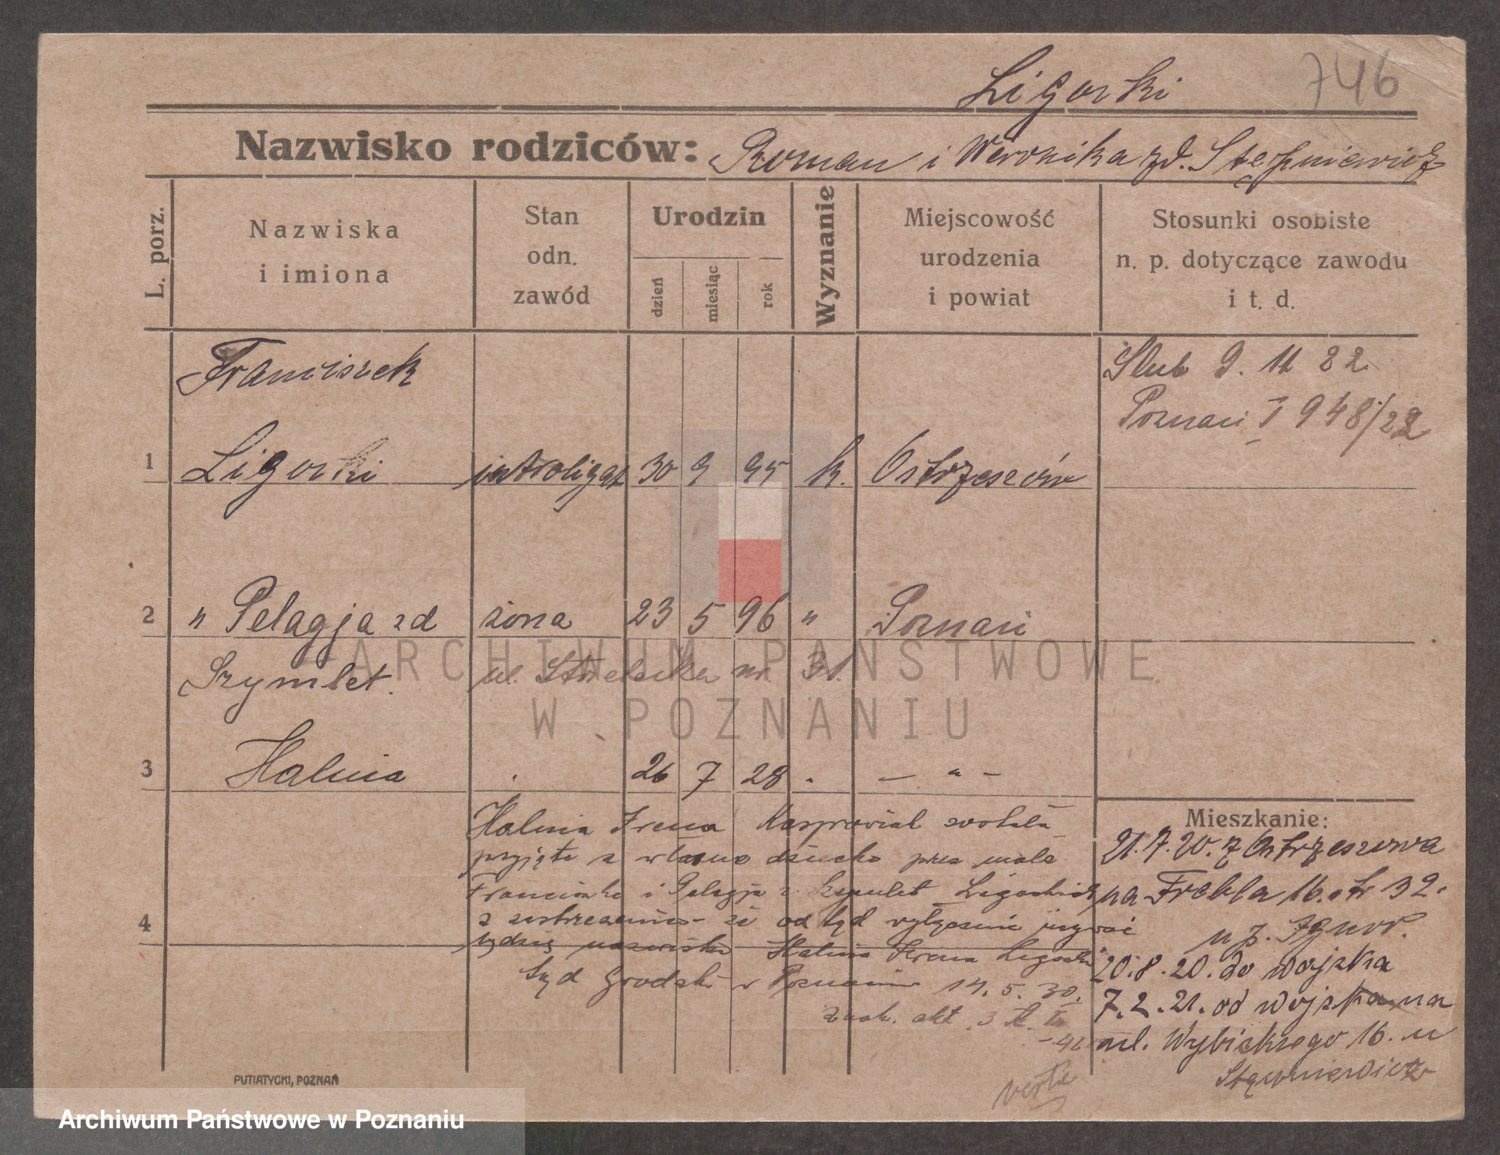 Ligorki
746
Nazwisko rodziców: Roman i Weronika zd. Stępniewicz
L. porz.
Nazwiska
i imiona
Stan
odn.
zawód
Urodzin
dzień
miesiąc
rok
Wyznanie
Miejscowość
urodzenia
i powiat
Stosunki osobiste
n. p. dotyczące zawodu
i t. d.
Franciszek
Ślub 9. 11 22.
Poznań I 948/22
1 Ligorki introligat 30 9 95 k. Ostrzeszów
2 " Pelagja zd żona 23 5 96 " Poznań
Szymlet. ul. Strzelecka nr 31
3 Halina 26 7 28 — " —
Halina Irena Kasprowiak została
przyjęta z własne dziecko przez małż.
Franciszka i Pelagja z Szymlet Ligorkich
z zastrzeżeniem że odtąd wyłącznie używać
4
będzie nazwiska Halina Irena Ligorki
Sąd Grodzki w Poznaniu 14. 5. 30.
znak. akt. 3
verte
Mieszkanie:
21.7.20. z Ostrzeszowa
na Frebla 16. tr 32.
u p. Ignor.
20.8.20. do wojska
7.2.21. od wojska na
ul. Wybickiego 16. u
Stępniewicz
PUTIATYCKI, POZNAŃ
ARCHIWUM PAŃSTWOWE
W POZNANIU
Archiwum Państwowe w Poznaniu